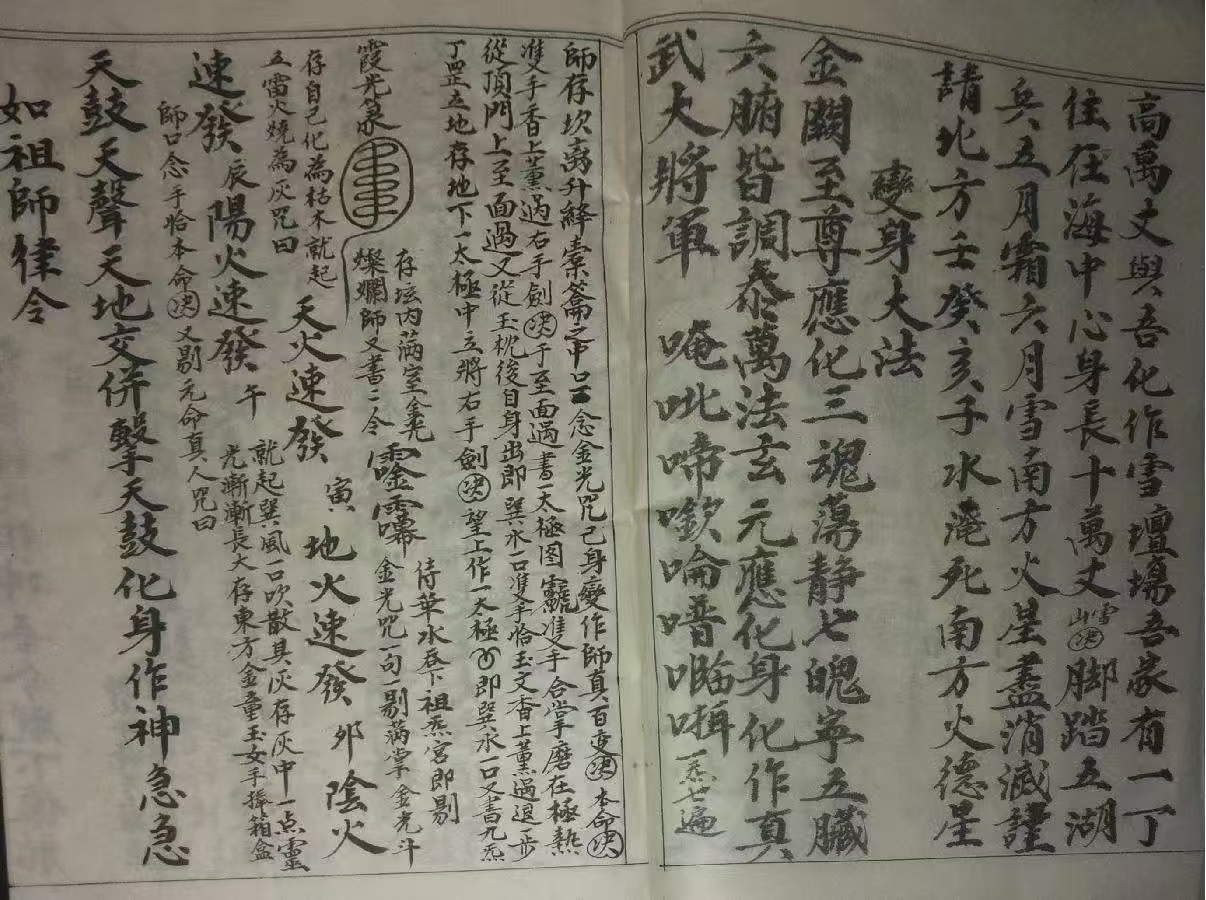 高萬丈與吾化作雪壇場吾家有一丁
住在海中心身長十萬丈雪山決脚踏五湖
兵五月霜六月雪南方火星盡消滅謹
請北方壬癸亥子水淹死南方火德星
變身大法
金闕至尊應化三魂蕩靜七魄寧五臟
六腑皆調泰萬法玄元應化身化作真
武大將軍 唵吡啼㗛㖮喑 一炁七遍
師存坎离升絳橐籥之中口念金光咒己身變作師真百变決本命決
雙手香上薰過右手劍決于至面過書一太極图 雙手合掌磨在極熱
從頂門上至面過又從玉枕後自身出即巽水一口雙手恰玉文香上薰過退一步
丁罡立地存地下一太極中立將右手劍決望上作一太極即巽水一口又書九炁
霞光篆 存坛内满室金光
燦斕師又書二令 侍華水吞下祖炁宫即剔
金光咒一句一剔滿掌金光斗
存自己化為枯木就起
五雷火燒為灰咒曰 天火速發 寅 地火速發 卯 陰火
速發 辰 陽火速發 午 就起巽風一口吹散其灰存灰中一点靈
光漸漸長大存東方金童玉女手捧箱盒
師口念手恰本命決又剔元命真人咒曰
天鼓天聲天地交併擊天鼓化身作神急急
如祖師律令